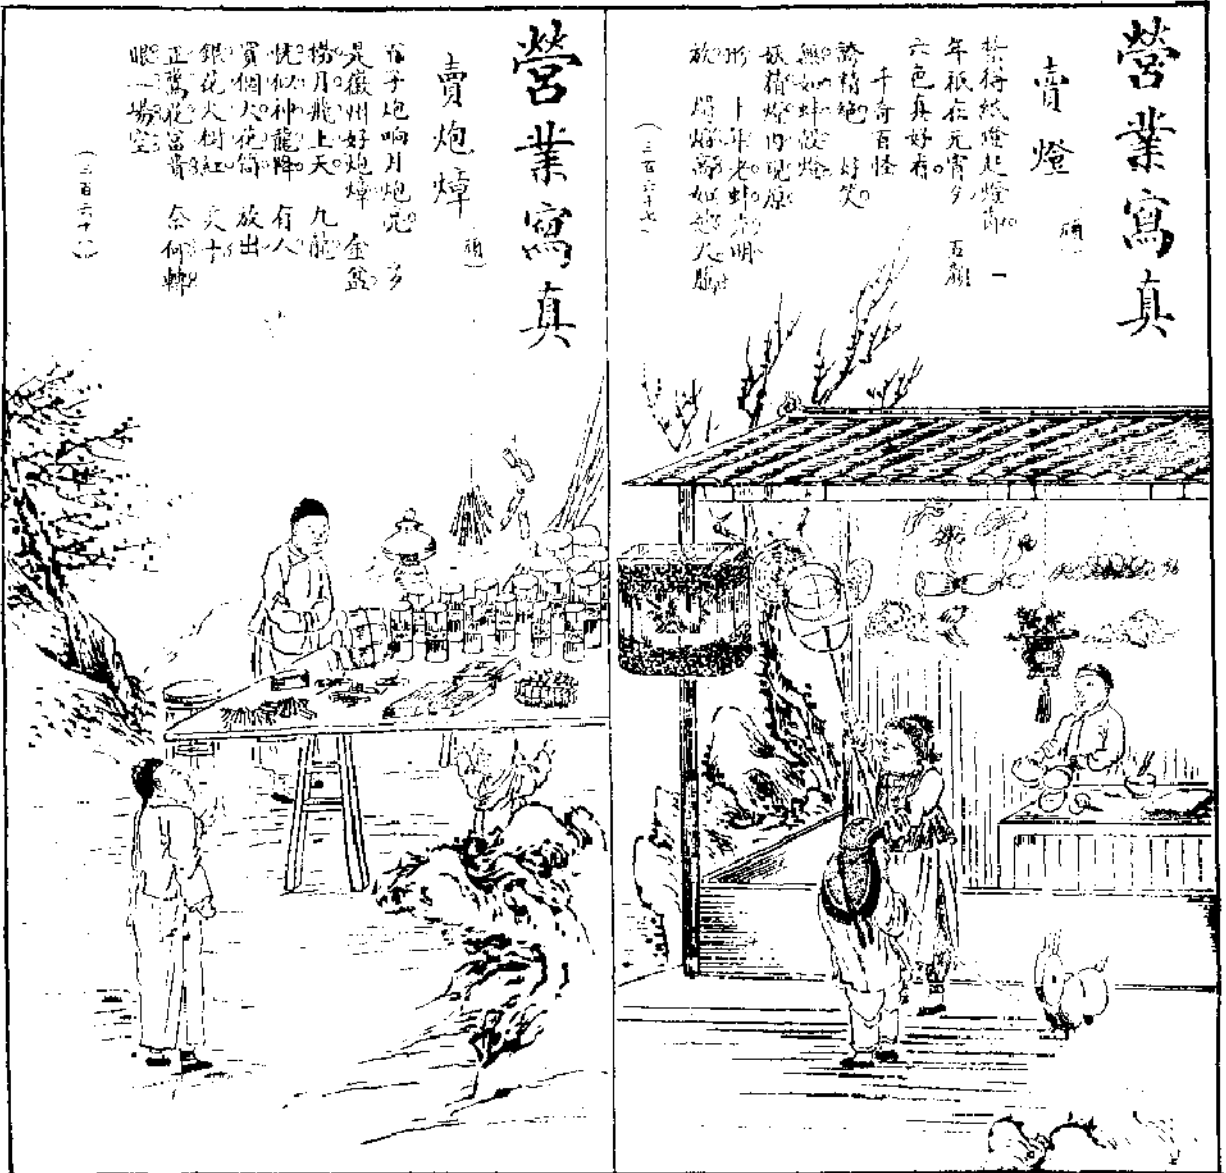 營業寫真
賣燈
紮得紙燈趁燈節 一
年祇在元宵夕 五顏
六色真好看
千奇百怪
誇精絕 好笑
無如蚌殼燈
妖精燈內現原
形 十年老蚌光明
放 高如慾火騰
(三百六十七)
營業寫真
賣炮㷟
百子炮响月炮亮 多
是徽州好炮㷟 金盆
撈月飛上天 九龍
恍似神龍降 有人
買個大花筒 放出
銀花火樹紅
正驚花富貴 奈何轉
眼一場空
(三百六十八)